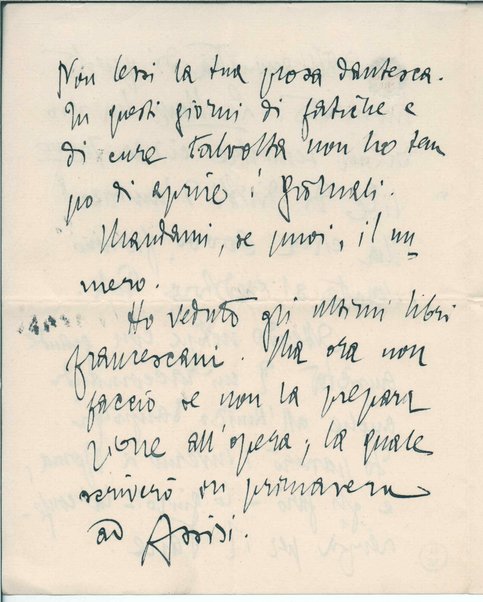 Non lessi la tua prosa dantesca.
In questi giorni di fatiche e
di cure talvolta non ho tem
po di aprire i giornali.
Mandami, se puoi, il nu
mero.
Ho veduto gli ultimi libri
francescani. Ma ora non
faccio se non la prepara
zione all'opera, la quale
scriverò in primavera
ad Assisi.